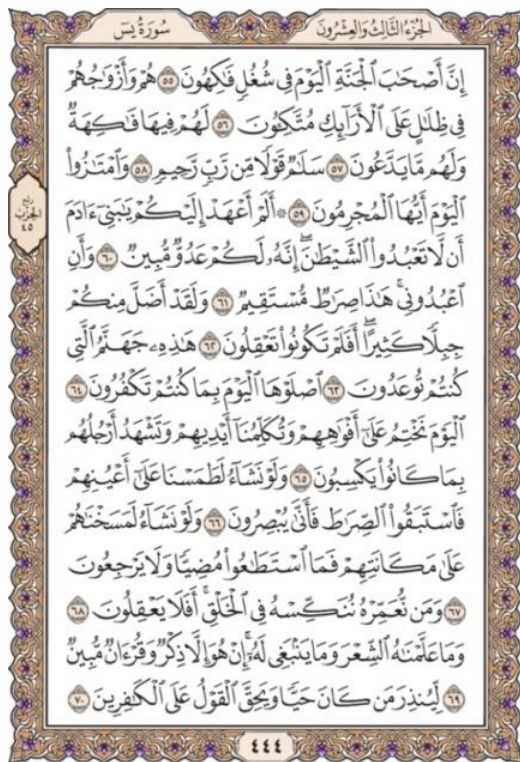 الجزء الثالث والعشرون
سورة يس
إِنَّ أَصْحَٰبَ ٱلْجَنَّةِ ٱلْيَوْمَ فِى شُغُلٍ فَٰكِهُونَ ٥٥ هُمْ وَأَزْوَٰجُهُمْ
فِى ظِلَٰلٍ عَلَى ٱلْأَرَآئِكِ مُتَّكِـُٔونَ ٥٦ لَهُمْ فِيهَا فَٰكِهَةٌ
وَلَهُم مَّا يَدَّعُونَ ٥٧ سَلَٰمٌ قَوْلًا مِّن رَّبٍّ رَّحِيمٍ ٥٨ وَٱمْتَٰزُوا۟
ٱلْيَوْمَ أَيُّهَا ٱلْمُجْرِمُونَ ٥٩ ۞ أَلَمْ أَعْهَدْ إِلَيْكُمْ يَٰبَنِىٓ ءَادَمَ
أَن لَّا تَعْبُدُوا۟ ٱلشَّيْطَٰنَ ۖ إِنَّهُۥ لَكُمْ عَدُوٌّ مُّبِينٌ ٦٠ وَأَنِ
ٱعْبُدُونِى ۚ هَٰذَا صِرَٰطٌ مُّسْتَقِيمٌ ٦١ وَلَقَدْ أَضَلَّ مِنكُمْ
جِبِلًّا كَثِيرًا ۖ أَفَلَمْ تَكُونُوا۟ تَعْقِلُونَ ٦٢ هَٰذِهِۦ جَهَنَّمُ ٱلَّتِى
كُنتُمْ تُوعَدُونَ ٦٣ ٱصْلَوْهَا ٱلْيَوْمَ بِمَا كُنتُمْ تَكْفُرُونَ ٦٤
ٱلْيَوْمَ نَخْتِمُ عَلَىٰٓ أَفْوَٰهِهِمْ وَتُكَلِّمُنَآ أَيْدِيهِمْ وَتَشْهَدُ أَرْجُلُهُم
بِمَا كَانُوا۟ يَكْسِبُونَ ٦٥ وَلَوْ نَشَآءُ لَطَمَسْنَا عَلَىٰٓ أَعْيُنِهِمْ
فَٱسْتَبَقُوا۟ ٱلصِّرَٰطَ فَأَنَّىٰ يُبْصِرُونَ ٦٦ وَلَوْ نَشَآءُ لَمَسَخْنَٰهُمْ
عَلَىٰ مَكَانَتِهِمْ فَمَا ٱسْتَطَٰعُوا۟ مُضِيًّا وَلَا يَرْجِعُونَ
٦٧ وَمَن نُّعَمِّرْهُ نُنَكِّسْهُ فِى ٱلْخَلْقِ ۖ أَفَلَا يَعْقِلُونَ ٦٨
وَمَا عَلَّمْنَٰهُ ٱلشِّعْرَ وَمَا يَنۢبَغِى لَهُۥٓ ۚ إِنْ هُوَ إِلَّا ذِكْرٌ وَقُرْءَانٌ مُّبِينٌ
٦٩ لِّيُنذِرَ مَن كَانَ حَيًّا وَيَحِقَّ ٱلْقَوْلُ عَلَى ٱلْكَٰفِرِينَ ٧٠
ربع
الحزب
٤٥
٤٤٤